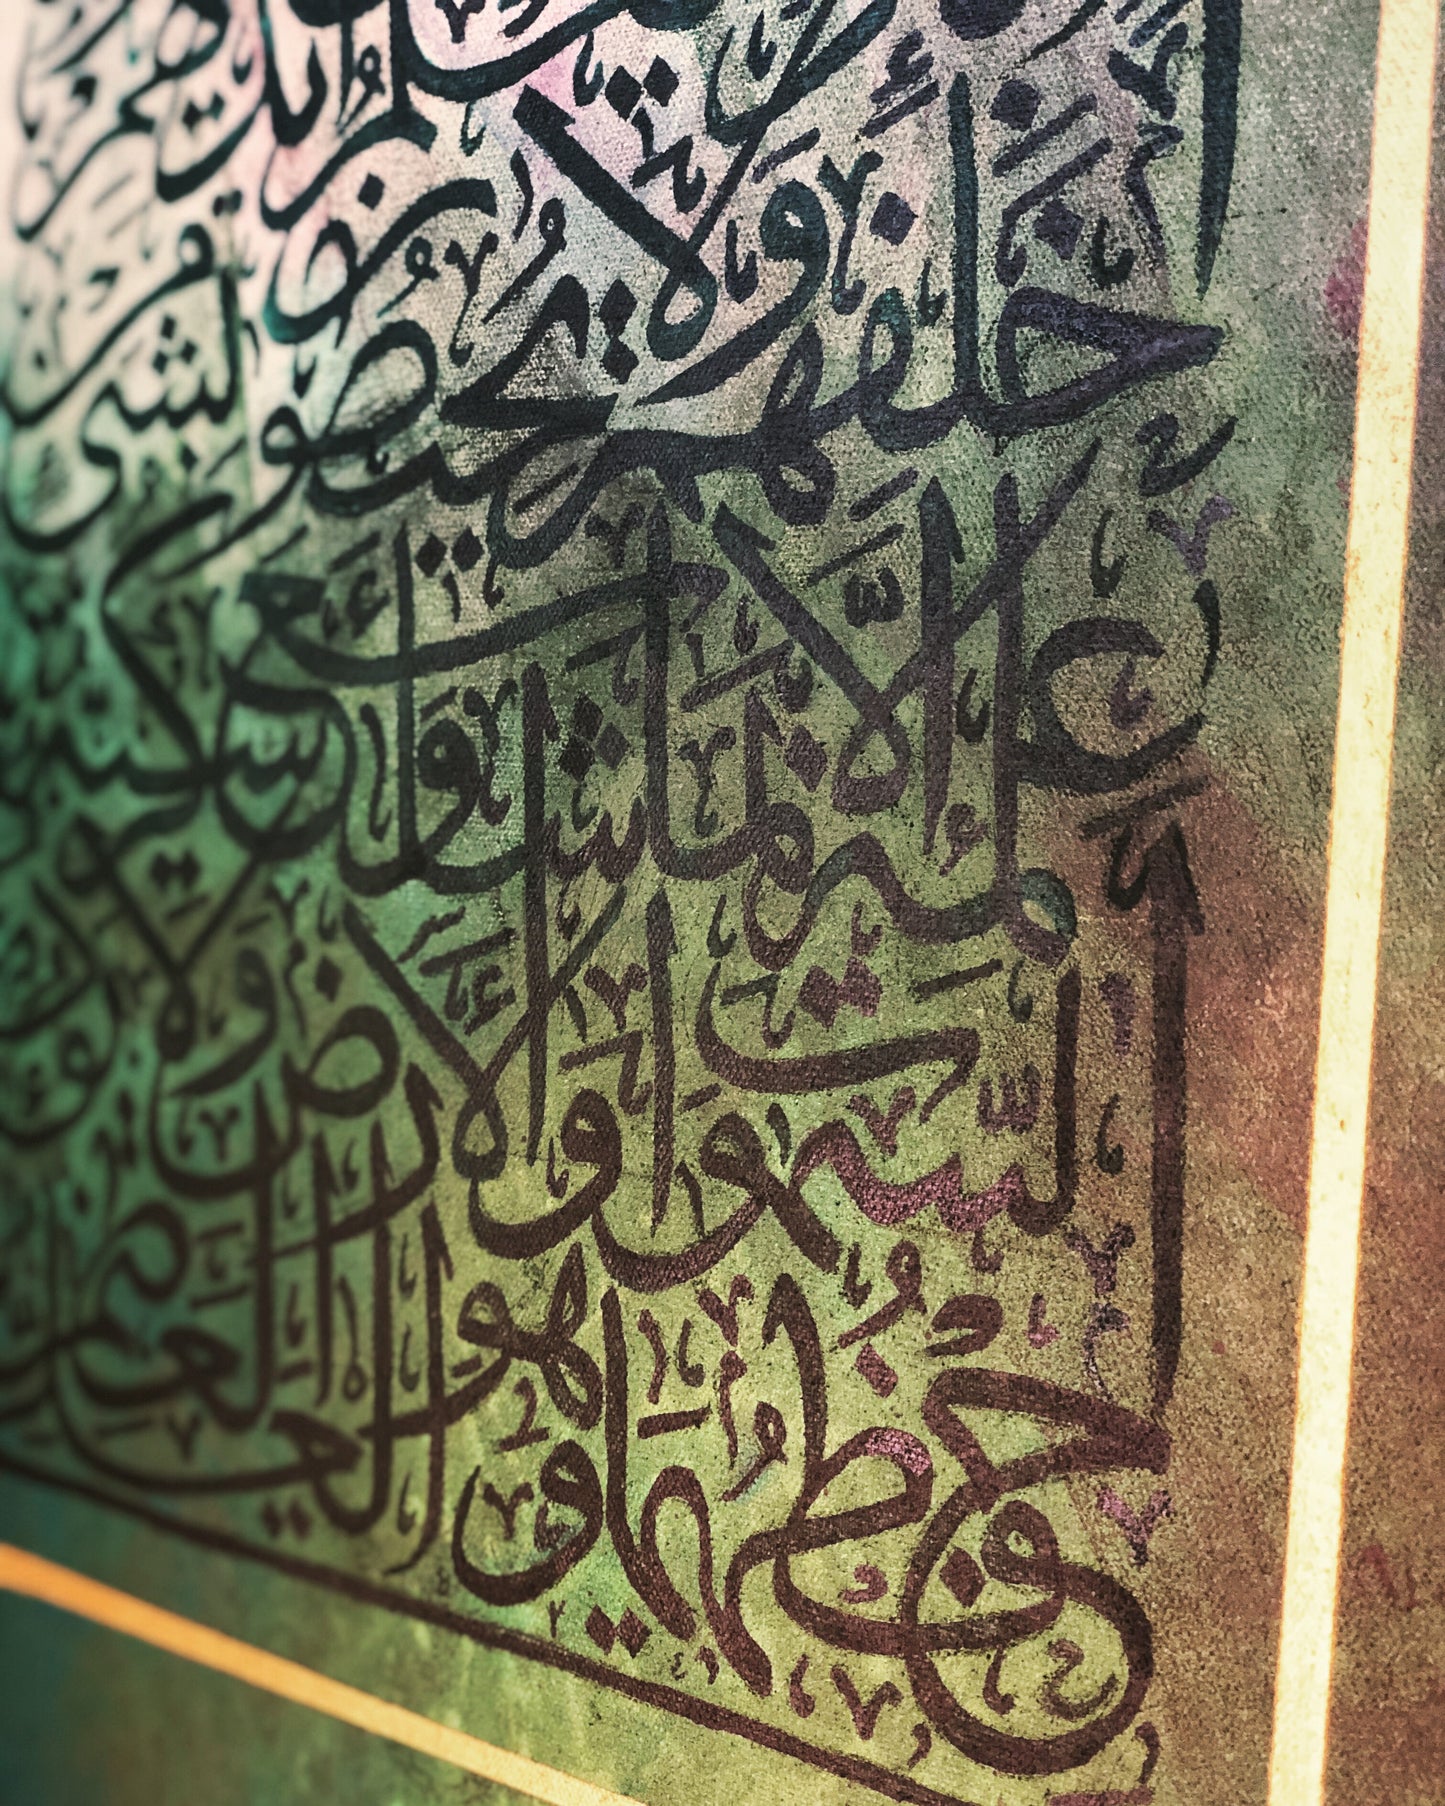 أيديهم
خلفهم ولا يحيطون بشىء من
علمه إلا بما شاء وسع كرسيه
السموات والأرض ولا يؤده
حفظهما وهو العلي العظيم